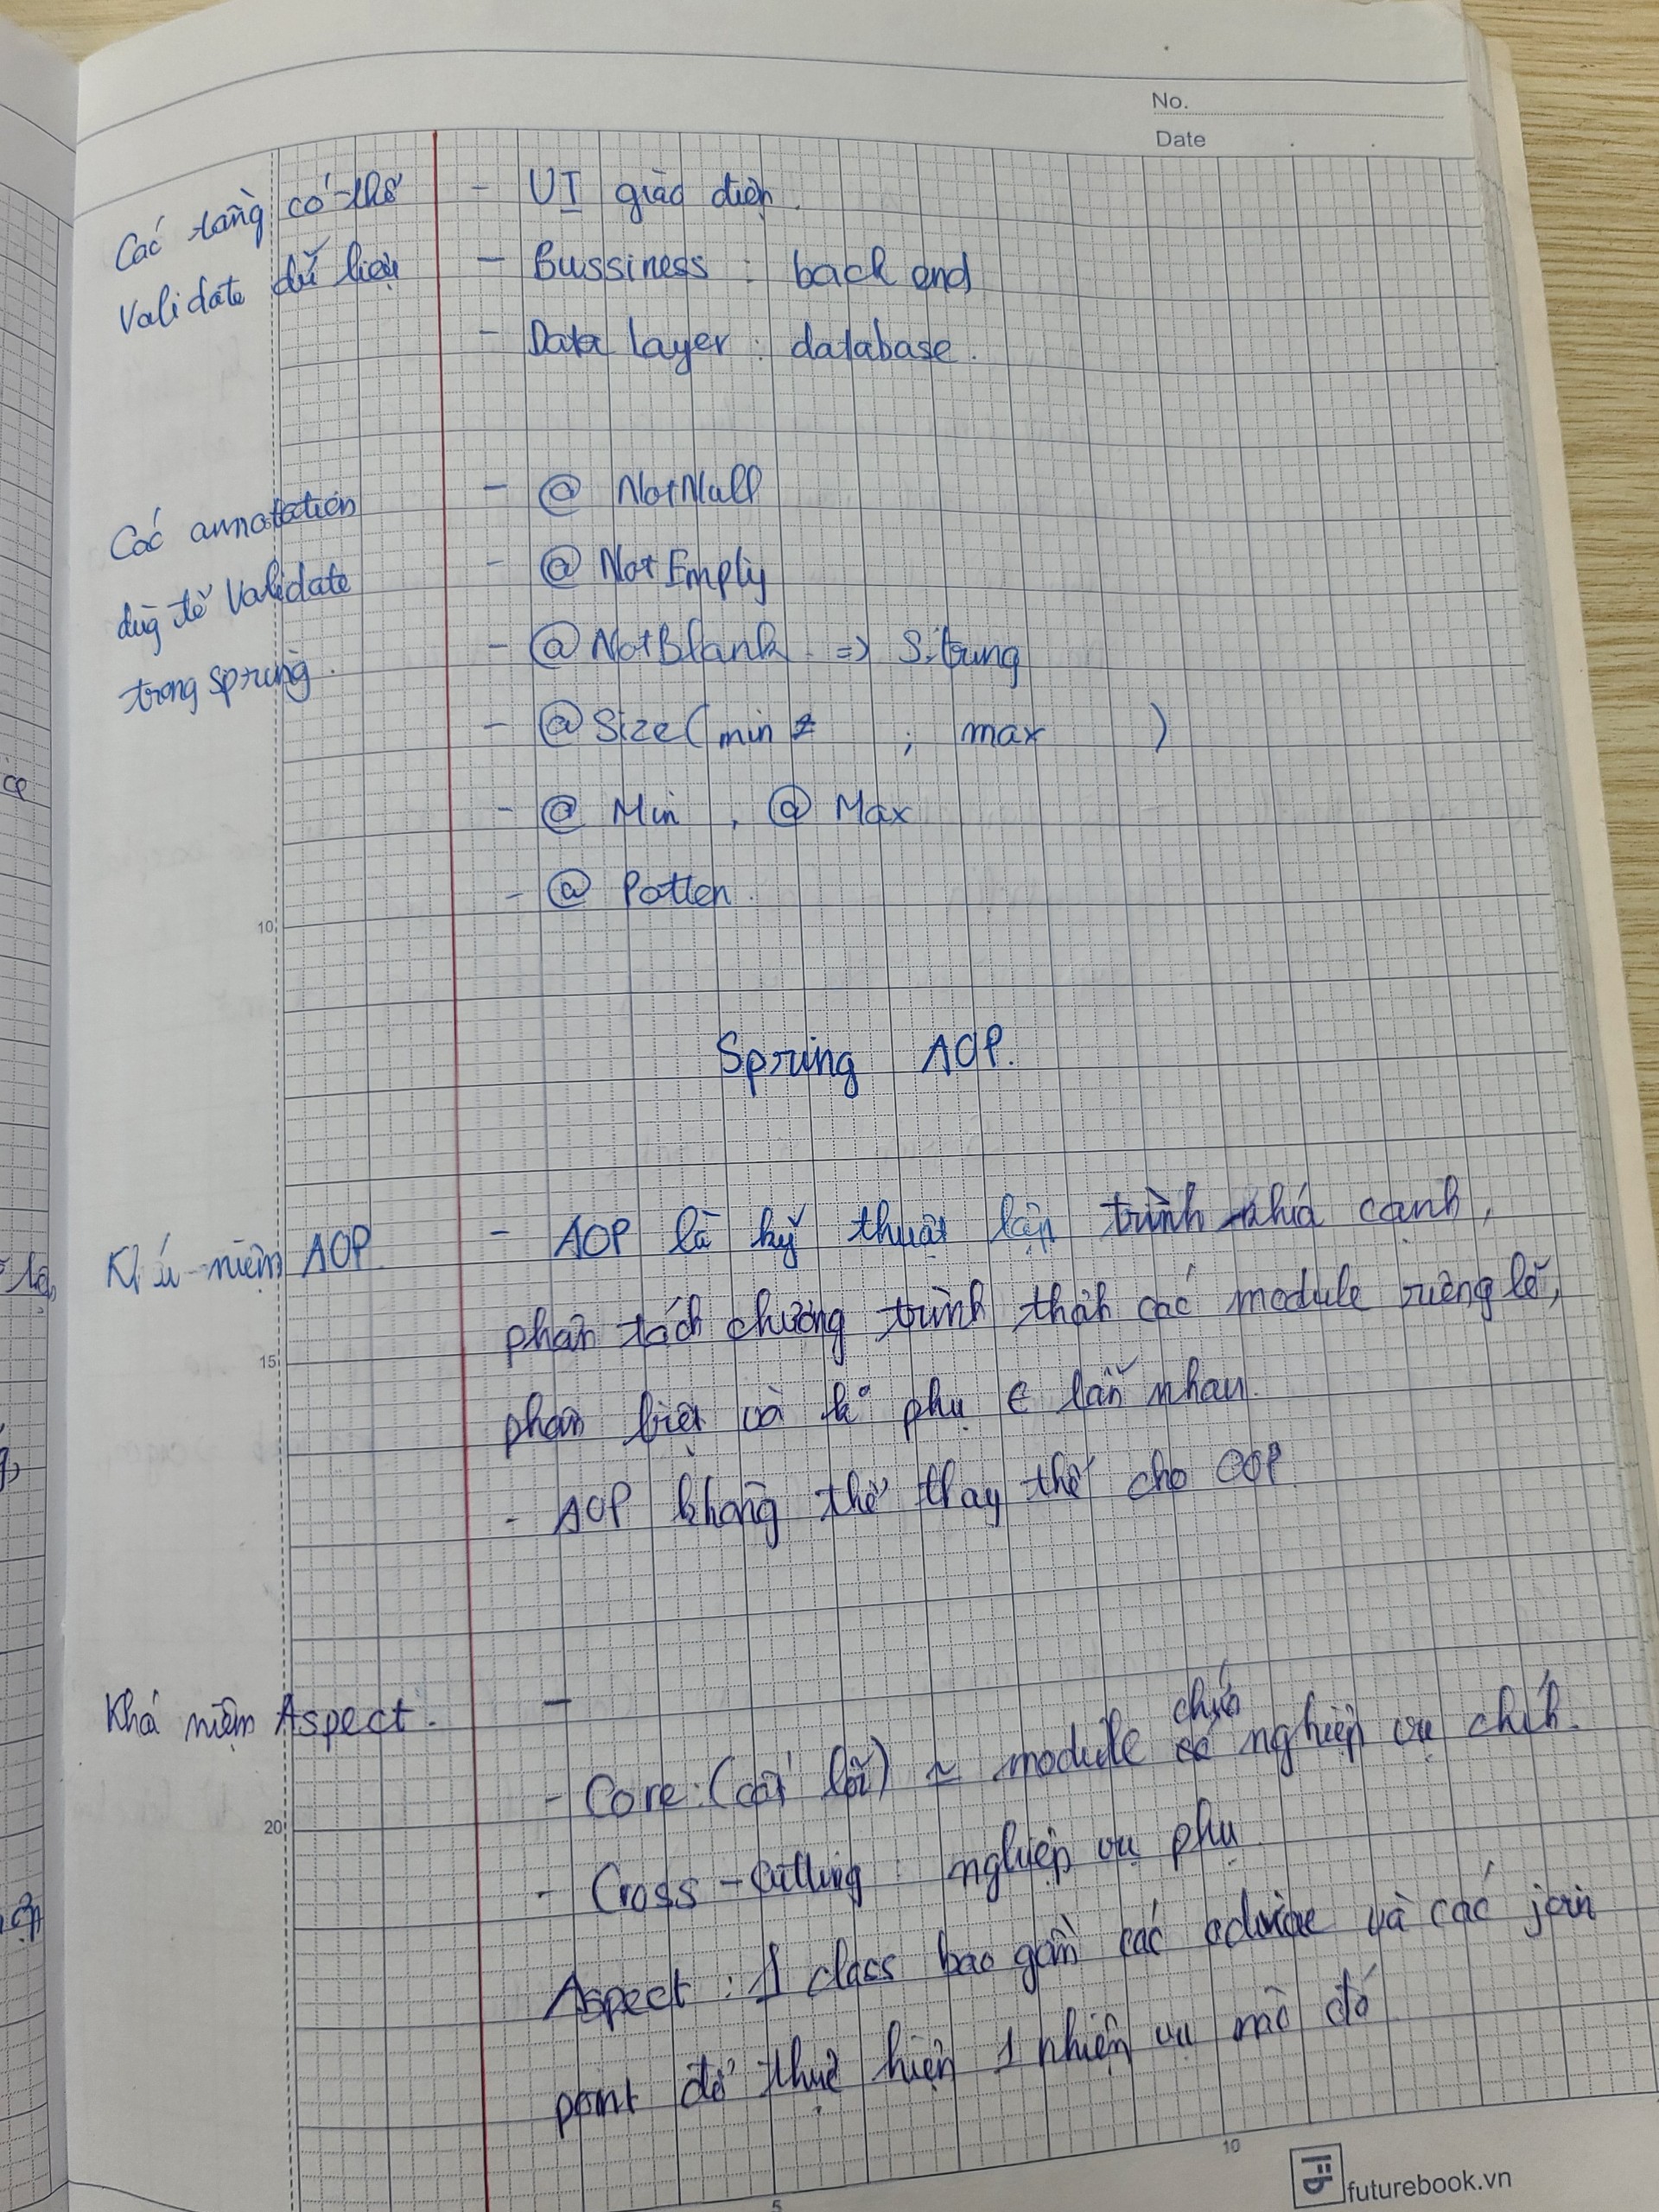 No.
Date
Các tầng có thể
Validate dữ liệu
- UI giao diện.
- Bussiness : back end
- Data layer : database.
Các annotation
dùg để Validate
trong Spring.
- @ NotNull
- @ Not Empty
- @ NotBlank => String
- @ Size (min ; max )
- @ Min , @ Max
- @ Patten.
10
Spring AOP.
Khái niệm AOP
- AOP là kỹ thuật lập trình khía cạnh,
phân tách chương trình thành các module riêng lẻ,
15
phân biệt và k° phụ € lẫn nhau.
- AOP không thể thay thế cho OOP
Khái niệm Aspect.
-
chứa
- Core : (cốt lõi) ~ module nghiệp vụ chính.
20
- Cross - Cutting : nghiệp vụ phụ
Aspect : 1 class bao gồm các advice và các join
point để thực hiện 1 nhiệm vụ nào đó
5
10
futurebook.vn